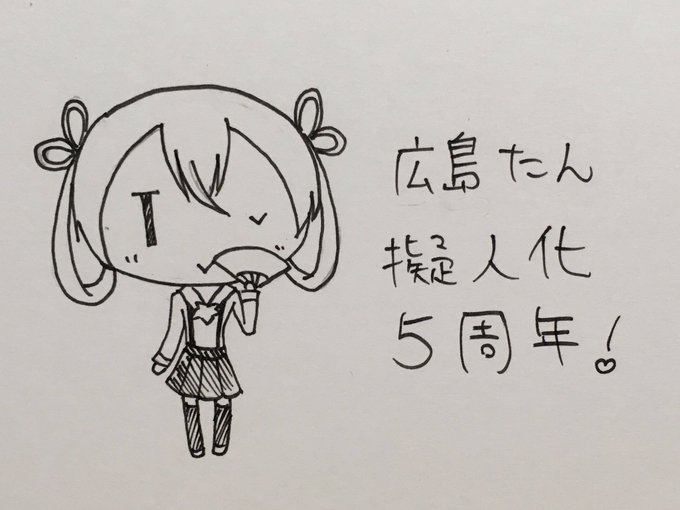 広島たん
擬人化
5周年!